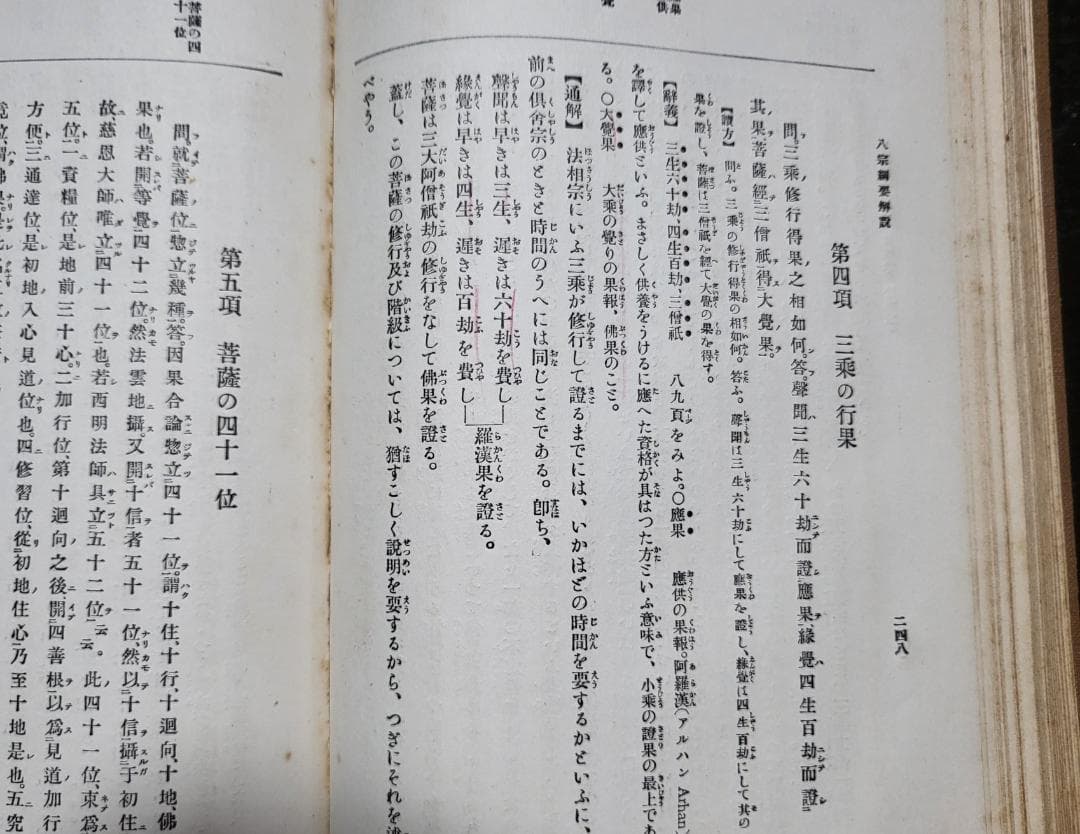 八宗綱要解説
二四八
第四項 三乘の行果
問。三乘修行得果之相如何。答。聲聞三生六十劫而證應果、緣覺四生百劫而證
其果。菩薩經三僧祇得大覺果。
【讀方】 問ふ。三乘の修行得果の相如何。答ふ。聲聞は三生六十劫にして應果を證し、緣覺は四生百劫にして其の
果を證し、菩薩は三僧祇を經て大覺の果を得す。
【辭義】 三生六十劫、四生百劫、三僧祇 八九頁をみよ。〇應果 應供の果報。阿羅漢(アルハン Arhan)
を譯して應供といふ。まさしく供養をうけるに應へた資格が具はつた方といふ意味で、小乘の證果の最上であ
る。〇大覺果 大乘の覺りの果報、佛果のこと。
【通解】 法相宗にいふ三乘が修行して證るまでには、いかほどの時間を要するかといふに、
前の倶舍宗のときと時間のうへには同じことである。卽ち、
聲聞は早きは三生、遲きは六十劫を費し
緣覺は早きは四生、遲きは百劫を費し
羅漢果を證る。
菩薩は三大阿僧祇劫の修行をなして佛果を證る。
蓋し、この菩薩の修行及び階級については、猶すこしく說明を要するから、つぎにそれを
べやう。
菩薩の四
十一位
第五項 菩薩の四十一位
問。就菩薩位惣立幾種。答。因果合論惣立四十一位。謂十住、十行、十迴向、十地、佛
果也。若開等覺四十二位。然法雲地攝。又開十信者五十一位、然以十信攝于初住
故、慈恩大師唯立四十一位也。若西明法師具立五十二位云云。此四十一位、束爲
五位。一資糧位、是地前三十心。二加行位、第十迴向之後、開四善根以爲見道加行
方便。三通達位、是初地入心見道位也。四修習位、從初地住心乃至十地是也。五究